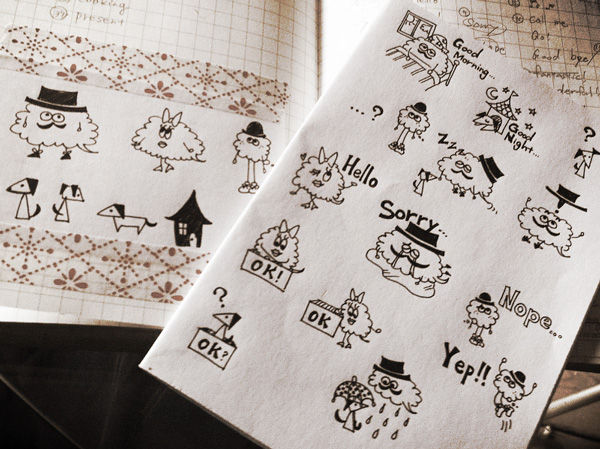 cooking.
present
Good
Morning...
... ?
Good
Night...
?
Zzz
Hello
Sorry...
OK!
OK
?
OK?
Nope...
Yep!!
Sorry
Call me
Good bye!
fantastic!